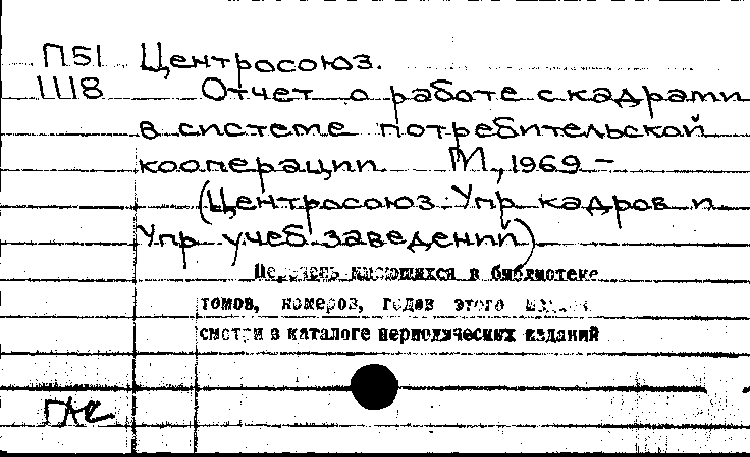 П51 Центросоюз.
1118 Отчет о работе с кадрами
в системе потребительской
кооперации М., 1969 –
(Центросоюз. Упр. кадров и
Упр. учеб. заведений)
Перечень имеющихся в библиотеке
томов, номеров, годов этого
смотри в каталоге периодических изданий